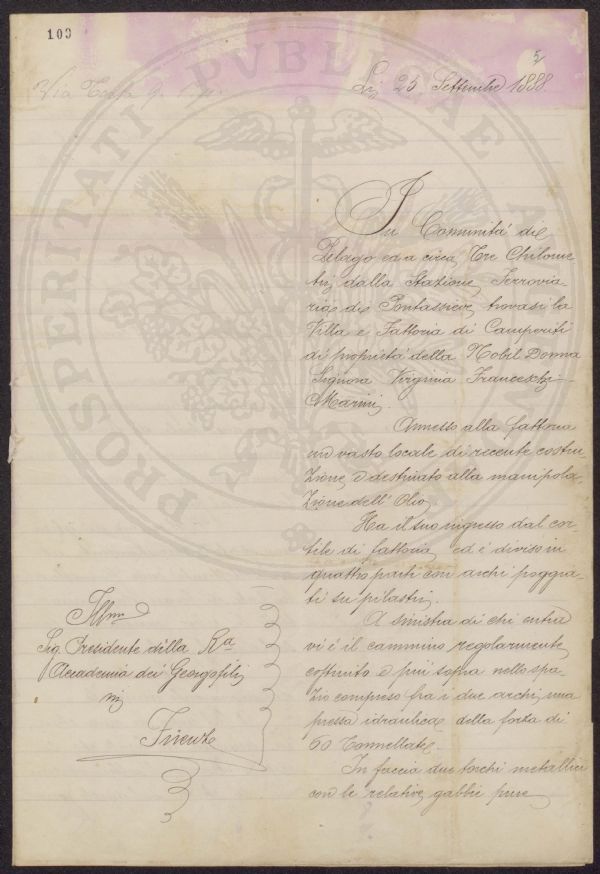 103
5/
Li 25 Settembre 1888.
PROSPERITATI PVBLICAE
In Comunità di
Pelago ed a circa Tre Chilome
tri dalla Stazione Ferrovia-
ria di Pontassieve trovasi la
Villa e Fattoria di Camperiti
di proprietà della Nobil Donna
Signora Virginia Franceschi-
Marini.
Annesso alla fattoria
un vasto locale di recente costru
zione, è destinato alla manipola
zione dell'Olio
Ha il suo ingresso dal cor-
tile di fattoria, ed è diviso in
quattro parti con archi poggia-
ti su pilastri.
A sinistra di chi entra
vi è il cammino regolarmente
costruito e più sopra nello spa-
zio compreso fra i due archi, una
pressa idraulica della forza di
60 Tonnellate.
In faccia due torchi metallici
con le relative gabbie pure
Illmo
Sig. Presidente della Ra
Accademia dei Georgofili
in
Firenze